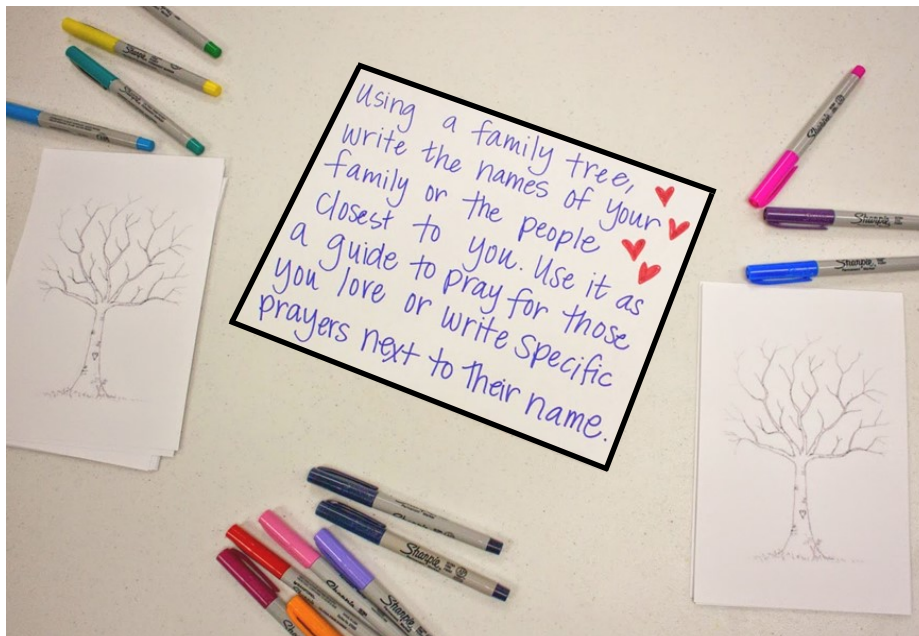 Using a family tree,
write the names of your
family or the people
closest to you. Use it as
a guide to pray for those
you love or write specific
prayers next to their name.
Sharpie
Sharpie
Sharpie
Sharpie
Sharpie
Sharpie
Sharpie
Sharpie
Sharpie
Sharpie